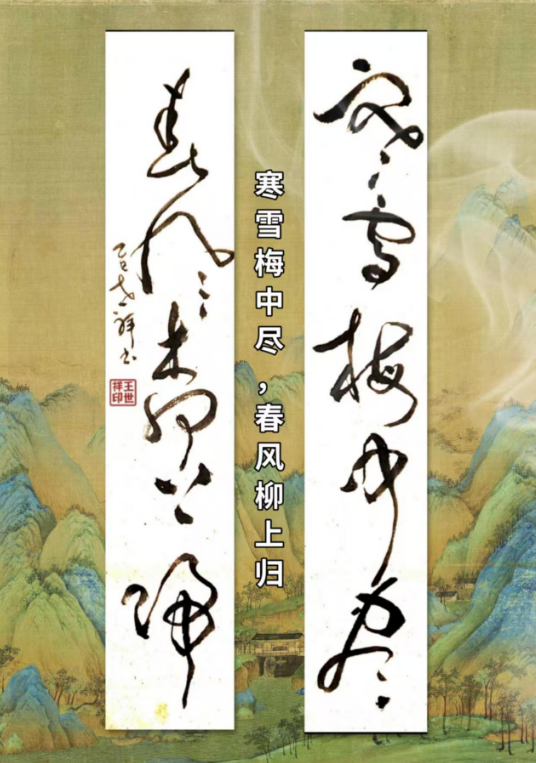 寒雪梅中尽
寒雪梅中尽，春风柳上归
春风柳上归
乙巳世祥书
王世祥印